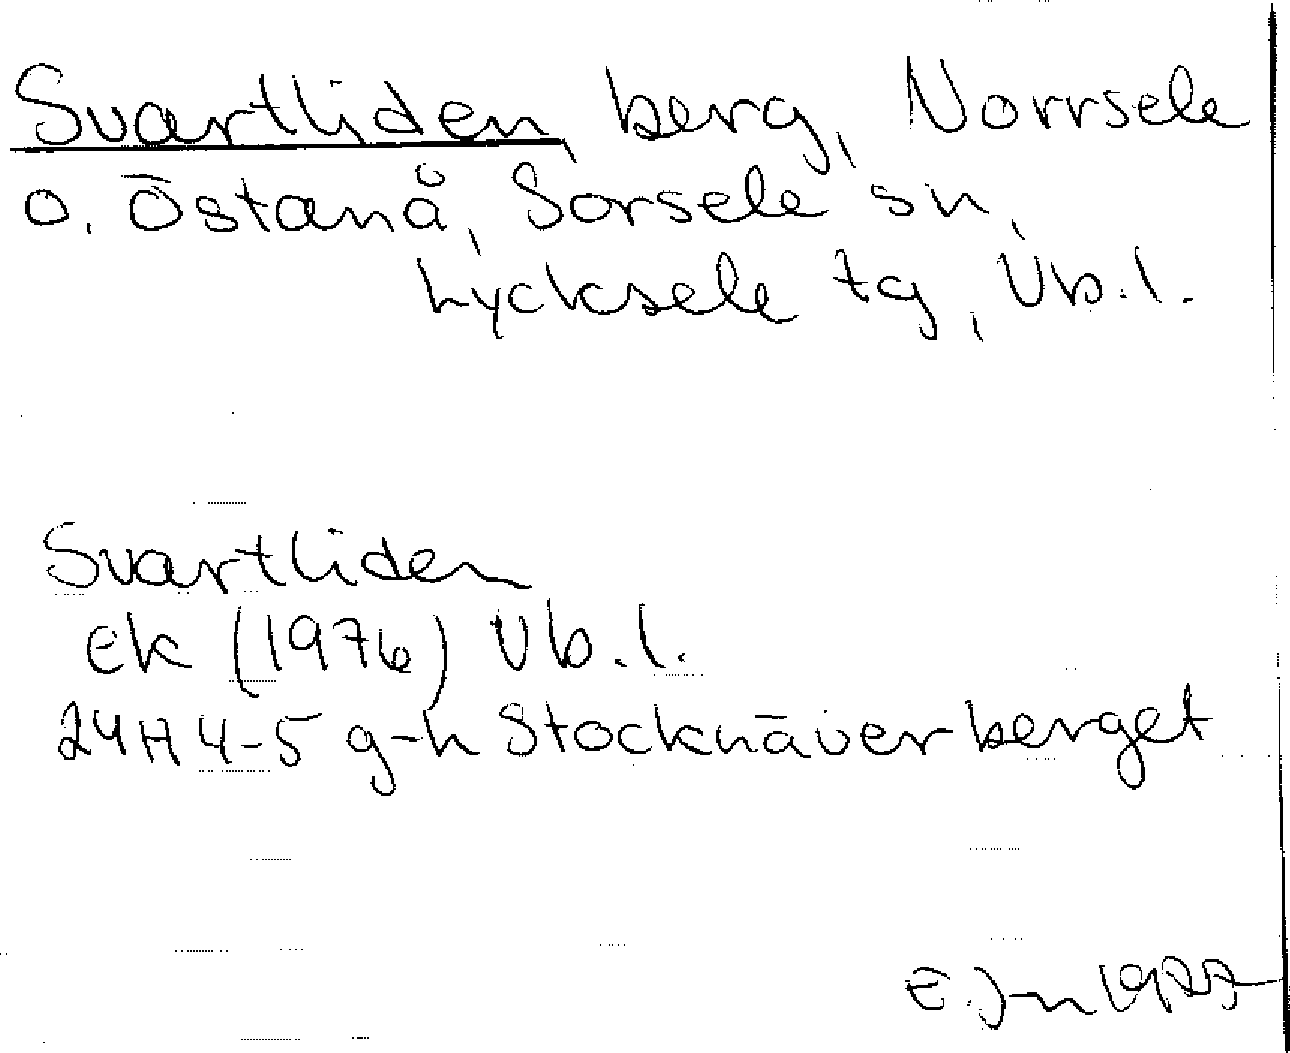 Svartliden, berg, Norrsele
o. Östanå, Sorsele sn,
Lycksele tg, Vb.l.
Svartliden
ek (1976) Vb.l.
24H 4-5 g-h Stocknäverberget
E. Jn 1987